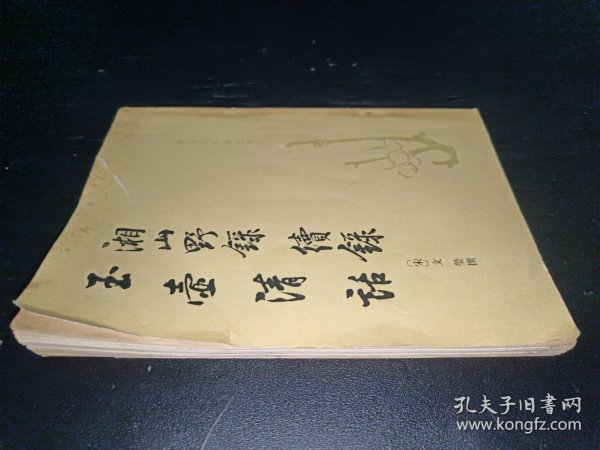 湘山野錄 續錄
玉壺清話
〔宋〕文瑩撰
孔夫子旧书网
www.kongfz.com